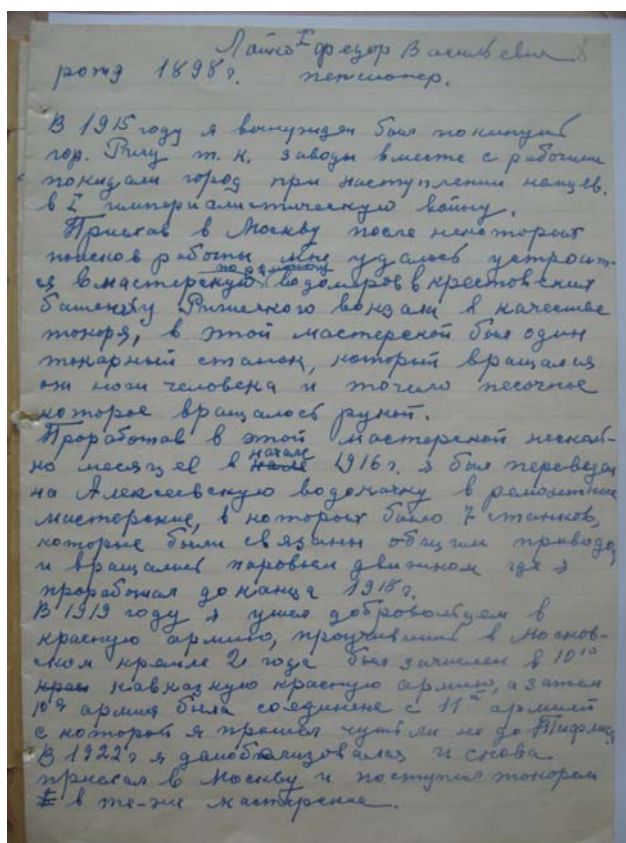 Федор Васильевич
рожд 1898г. пенсионер.
В 1915 году я вынужден был покинуть
гор. Ригу т. к. заводы вместе с рабочими
покидали город при наступлении немцев.
в I империалистическую войну.
Приехав в Москву после некоторых
поисков работы мне удалось устроит-
ся в мастерскую водомеров в крестовских
башен у Рижского вокзала в качестве
токоря, в этой мастерской был один
токарный станок, который вращался
от ноги человека и точило песочное
которое вращалось рукой.
Проработав в этой мастерской несколь-
ко месяцев в начале 1916г. я был переведен
на Алексеевскую водокачку в ремонтные
мастерские, в которых было 7 станков,
которые были связаны общим приводо
и вращались паровым движком где я
проработал до конца 1918г.
В 1919 году я ушел добровольцем в
красную армию, проучивший в Москов-
ском кремле 2 года был зачислен в 10ую
кавказкую красную армию, а затем
10я армия была соединена с 11й армией
с которой я прошел чуть ли не до Тифлиса
В 1922г я демобилизовался и снова
приехал в Москву и поступил токорем
в те-же мастерские.